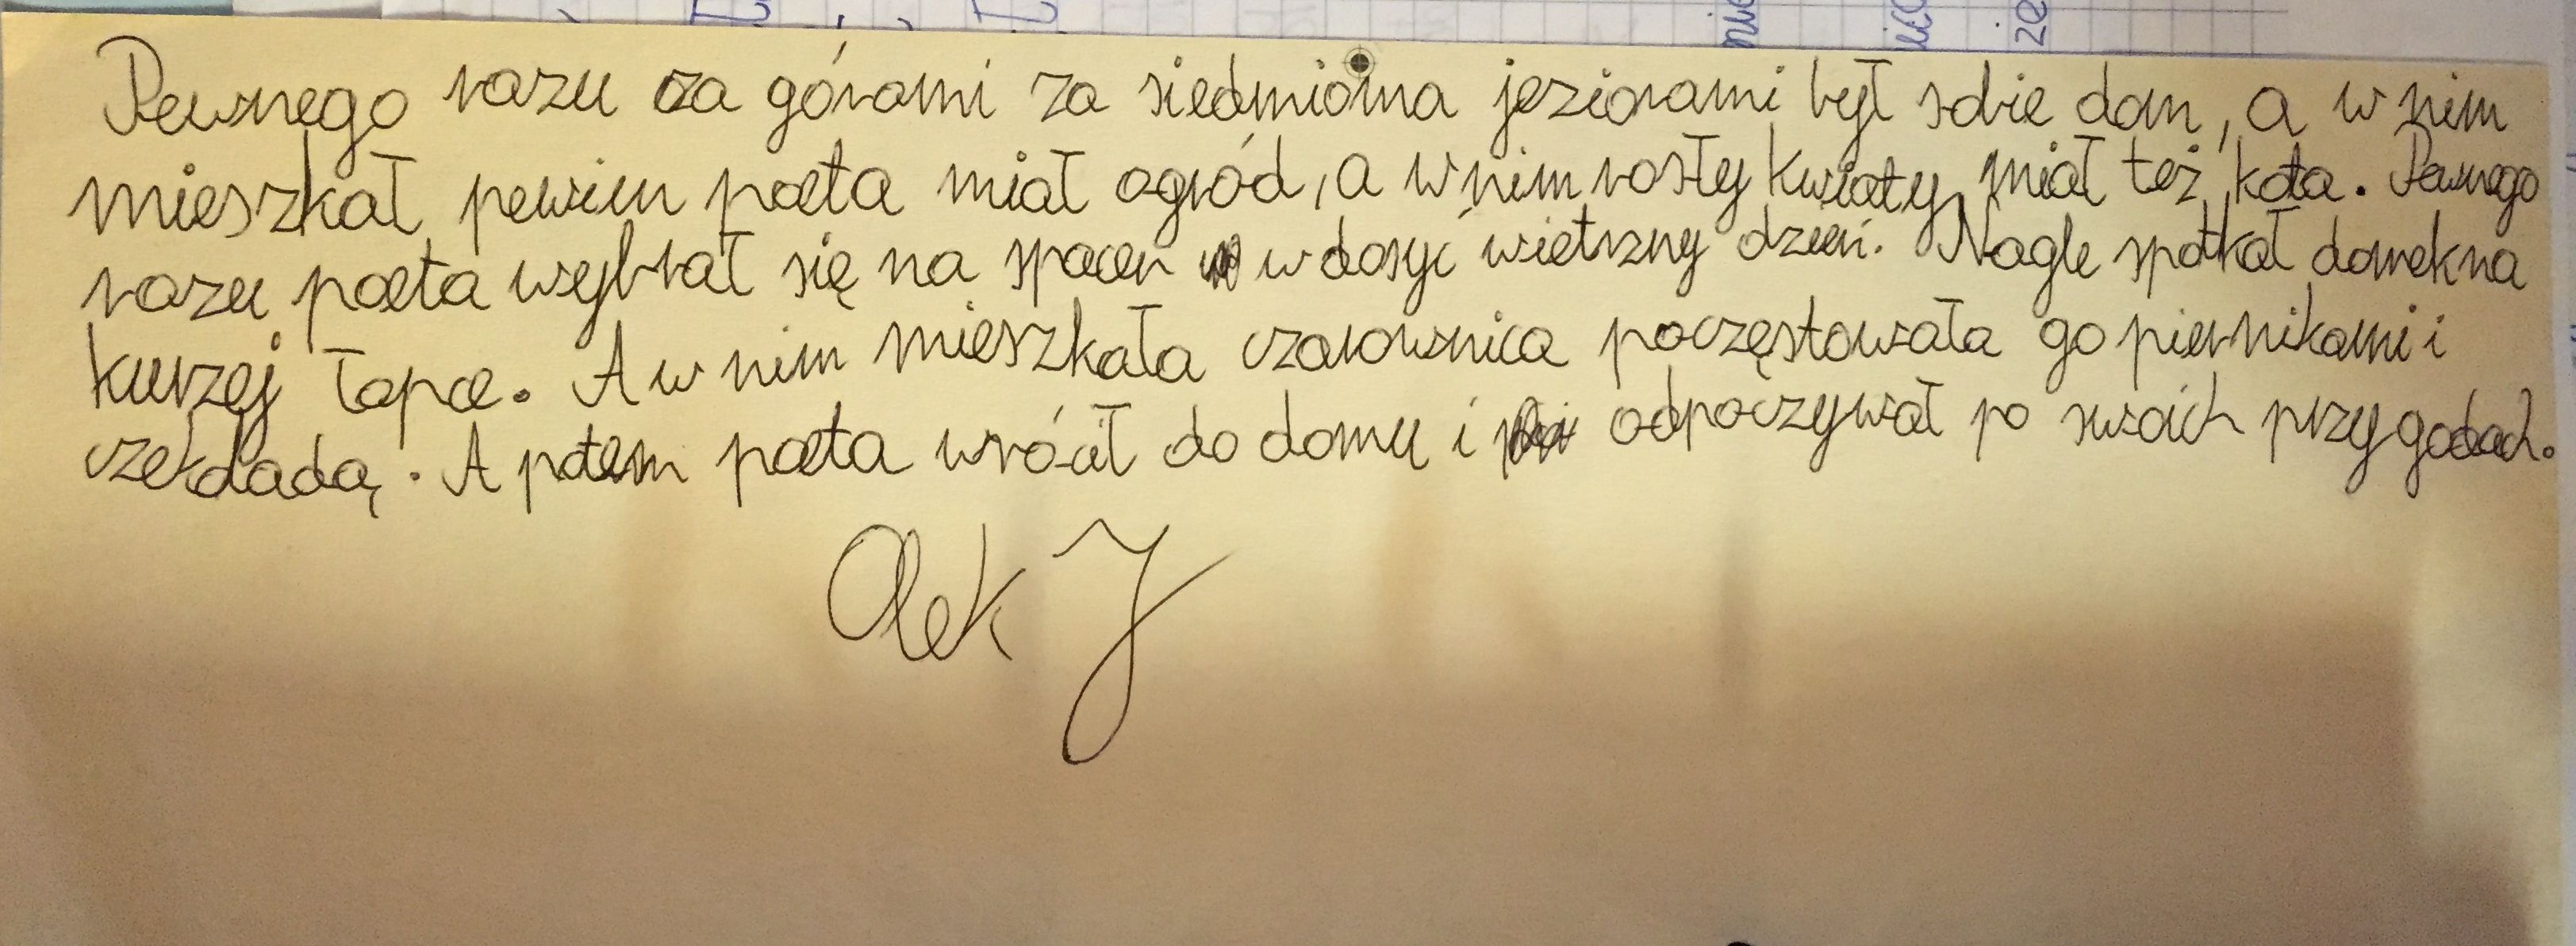 Pewnego razu za górami za siedmioma jeziorami był sobie dom, a w nim
mieszkał pewien poeta miał ogród, a w nim rosły kwiaty miał też kota. Pewnego
razu poeta wybrał się na spacer w dosyć wietrzny dzień. Nagle spotkał domek na
kurzej łapce. A w nim mieszkała czarownica poczęstowała go piernikami i
czekoladą. A potem poeta wrócił do domu i odpoczywał po swoich przygodach.
Olek J